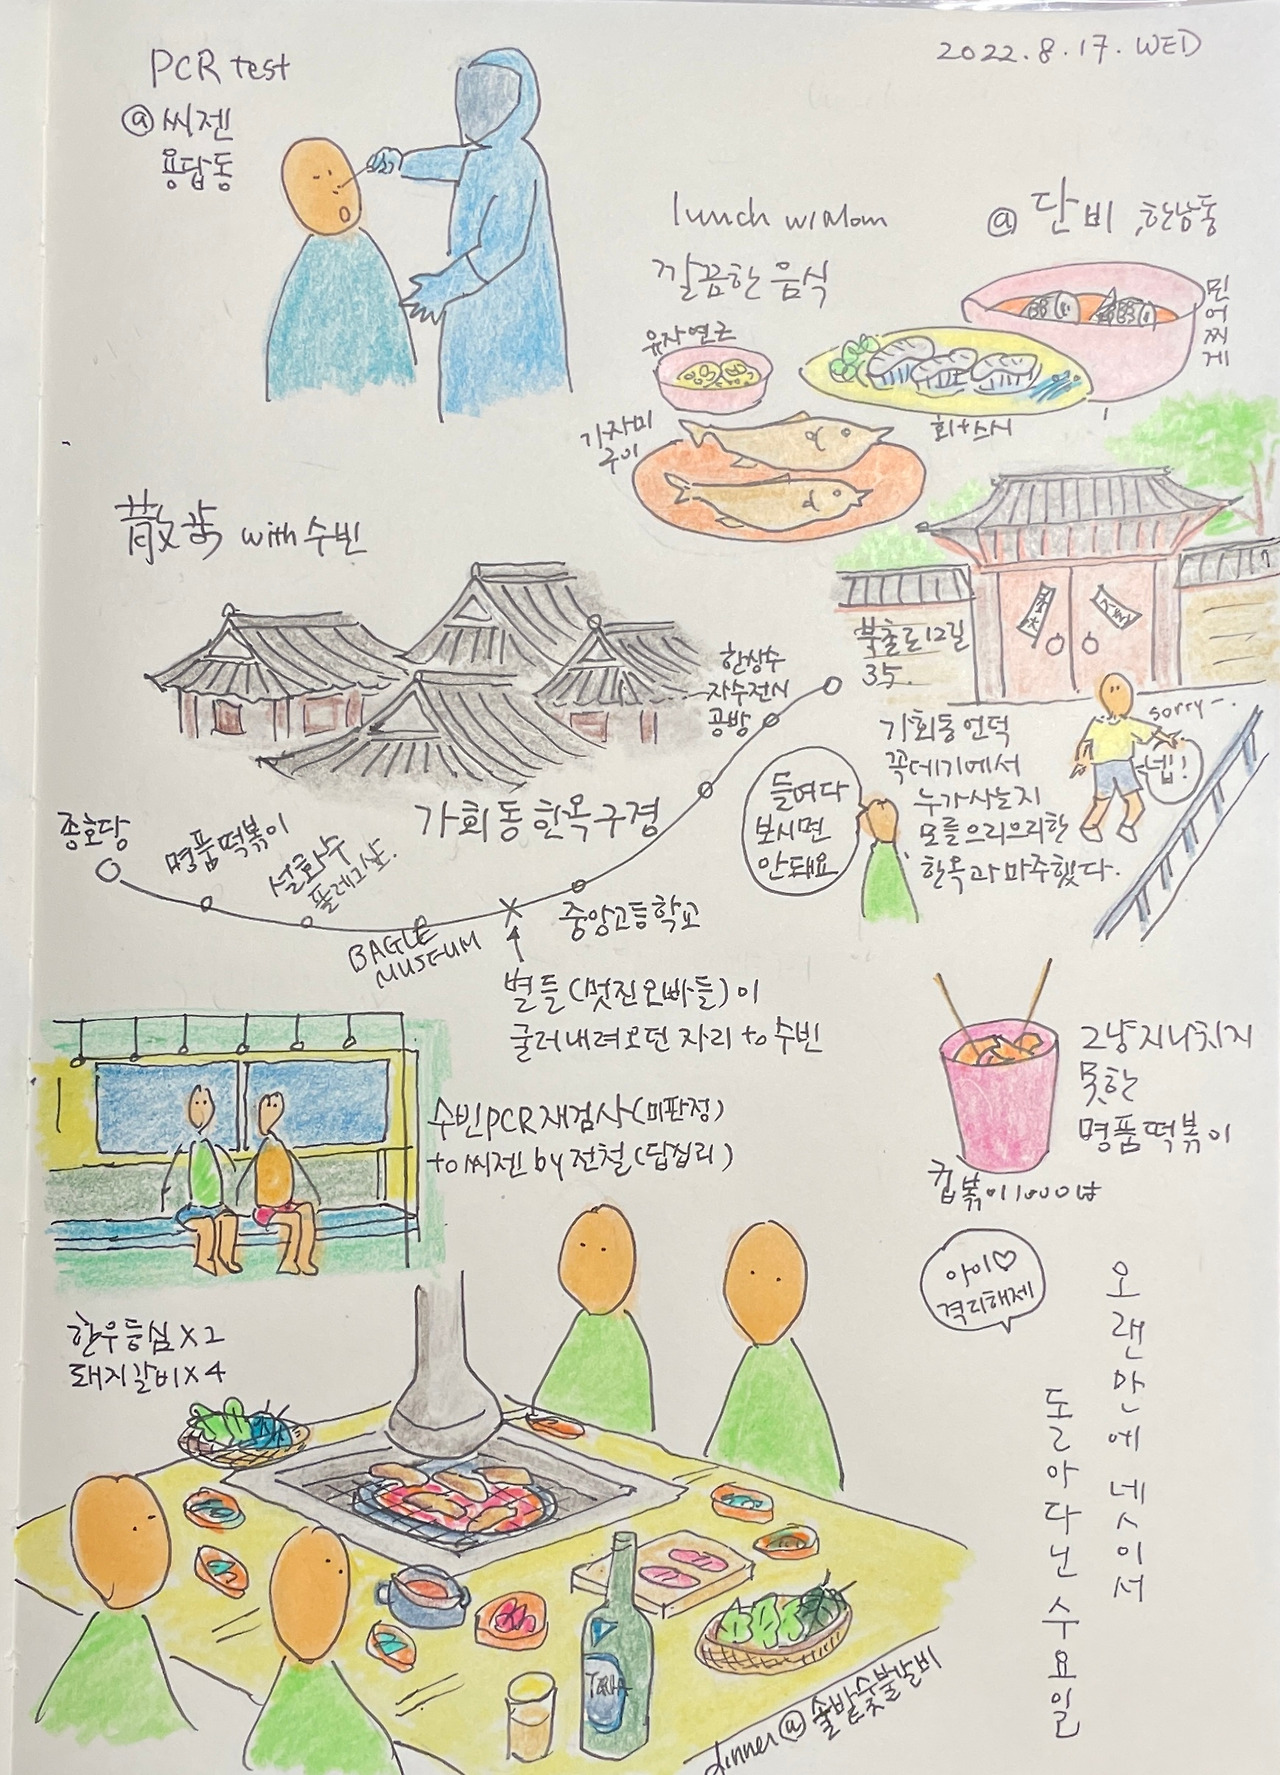 2022.8.17. WED
PCR test
@ 씨젠
용답동
lunch w/ Mom
@ 단비, 한남동
깔끔한 음식
유자연근
민어찌게
회+스시
가자미
구이
散步 with 수빈
북촌로12길
35.
한상수
자수전시
공방
가회동 한옥구경
종호당
명품떡볶이
설화수
플래그샵.
BAGLE
MUSEUM
중앙고등학교
별들(멋진오빠들)이
굴러내려오던 자리 to 수빈
가회동 언덕
꼭데기에서
누가사는지
모를으리으리한
한옥과 마주했다.
들여다
보시면
안돼요
sorry~.
넵!
수빈PCR재검사(미판정)
to 씨젠 by 전철(답십리)
그냥지나치지
못한
명품떡볶이
컵볶이1000냥
한우등심 x 2
돼지갈비 x 4
아이♡
격리해제
오랜만에 넷이서
돌아다닌 수요일
TERRA
dinner @ 솔밭숯불갈비